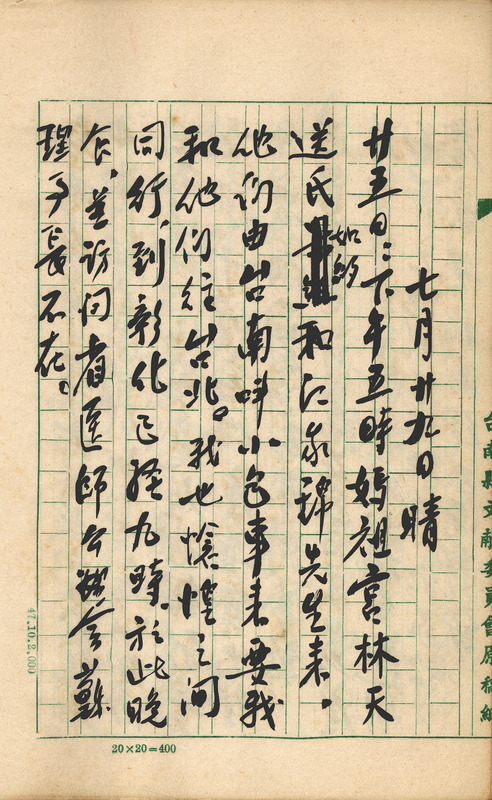 台南縣文獻委員會原稿紙
七月廿九日 晴
廿五日:下午五時媽祖宮林天
送氏如約和江家錦先生来。
他們由台南叫小包車来要我
和他們往台北。我也愴惶之间
同行,到彰化已経九時。於此晚
食,並訪问省医師公会蘇
理事長不在。
47.10.2,000
20×20=400